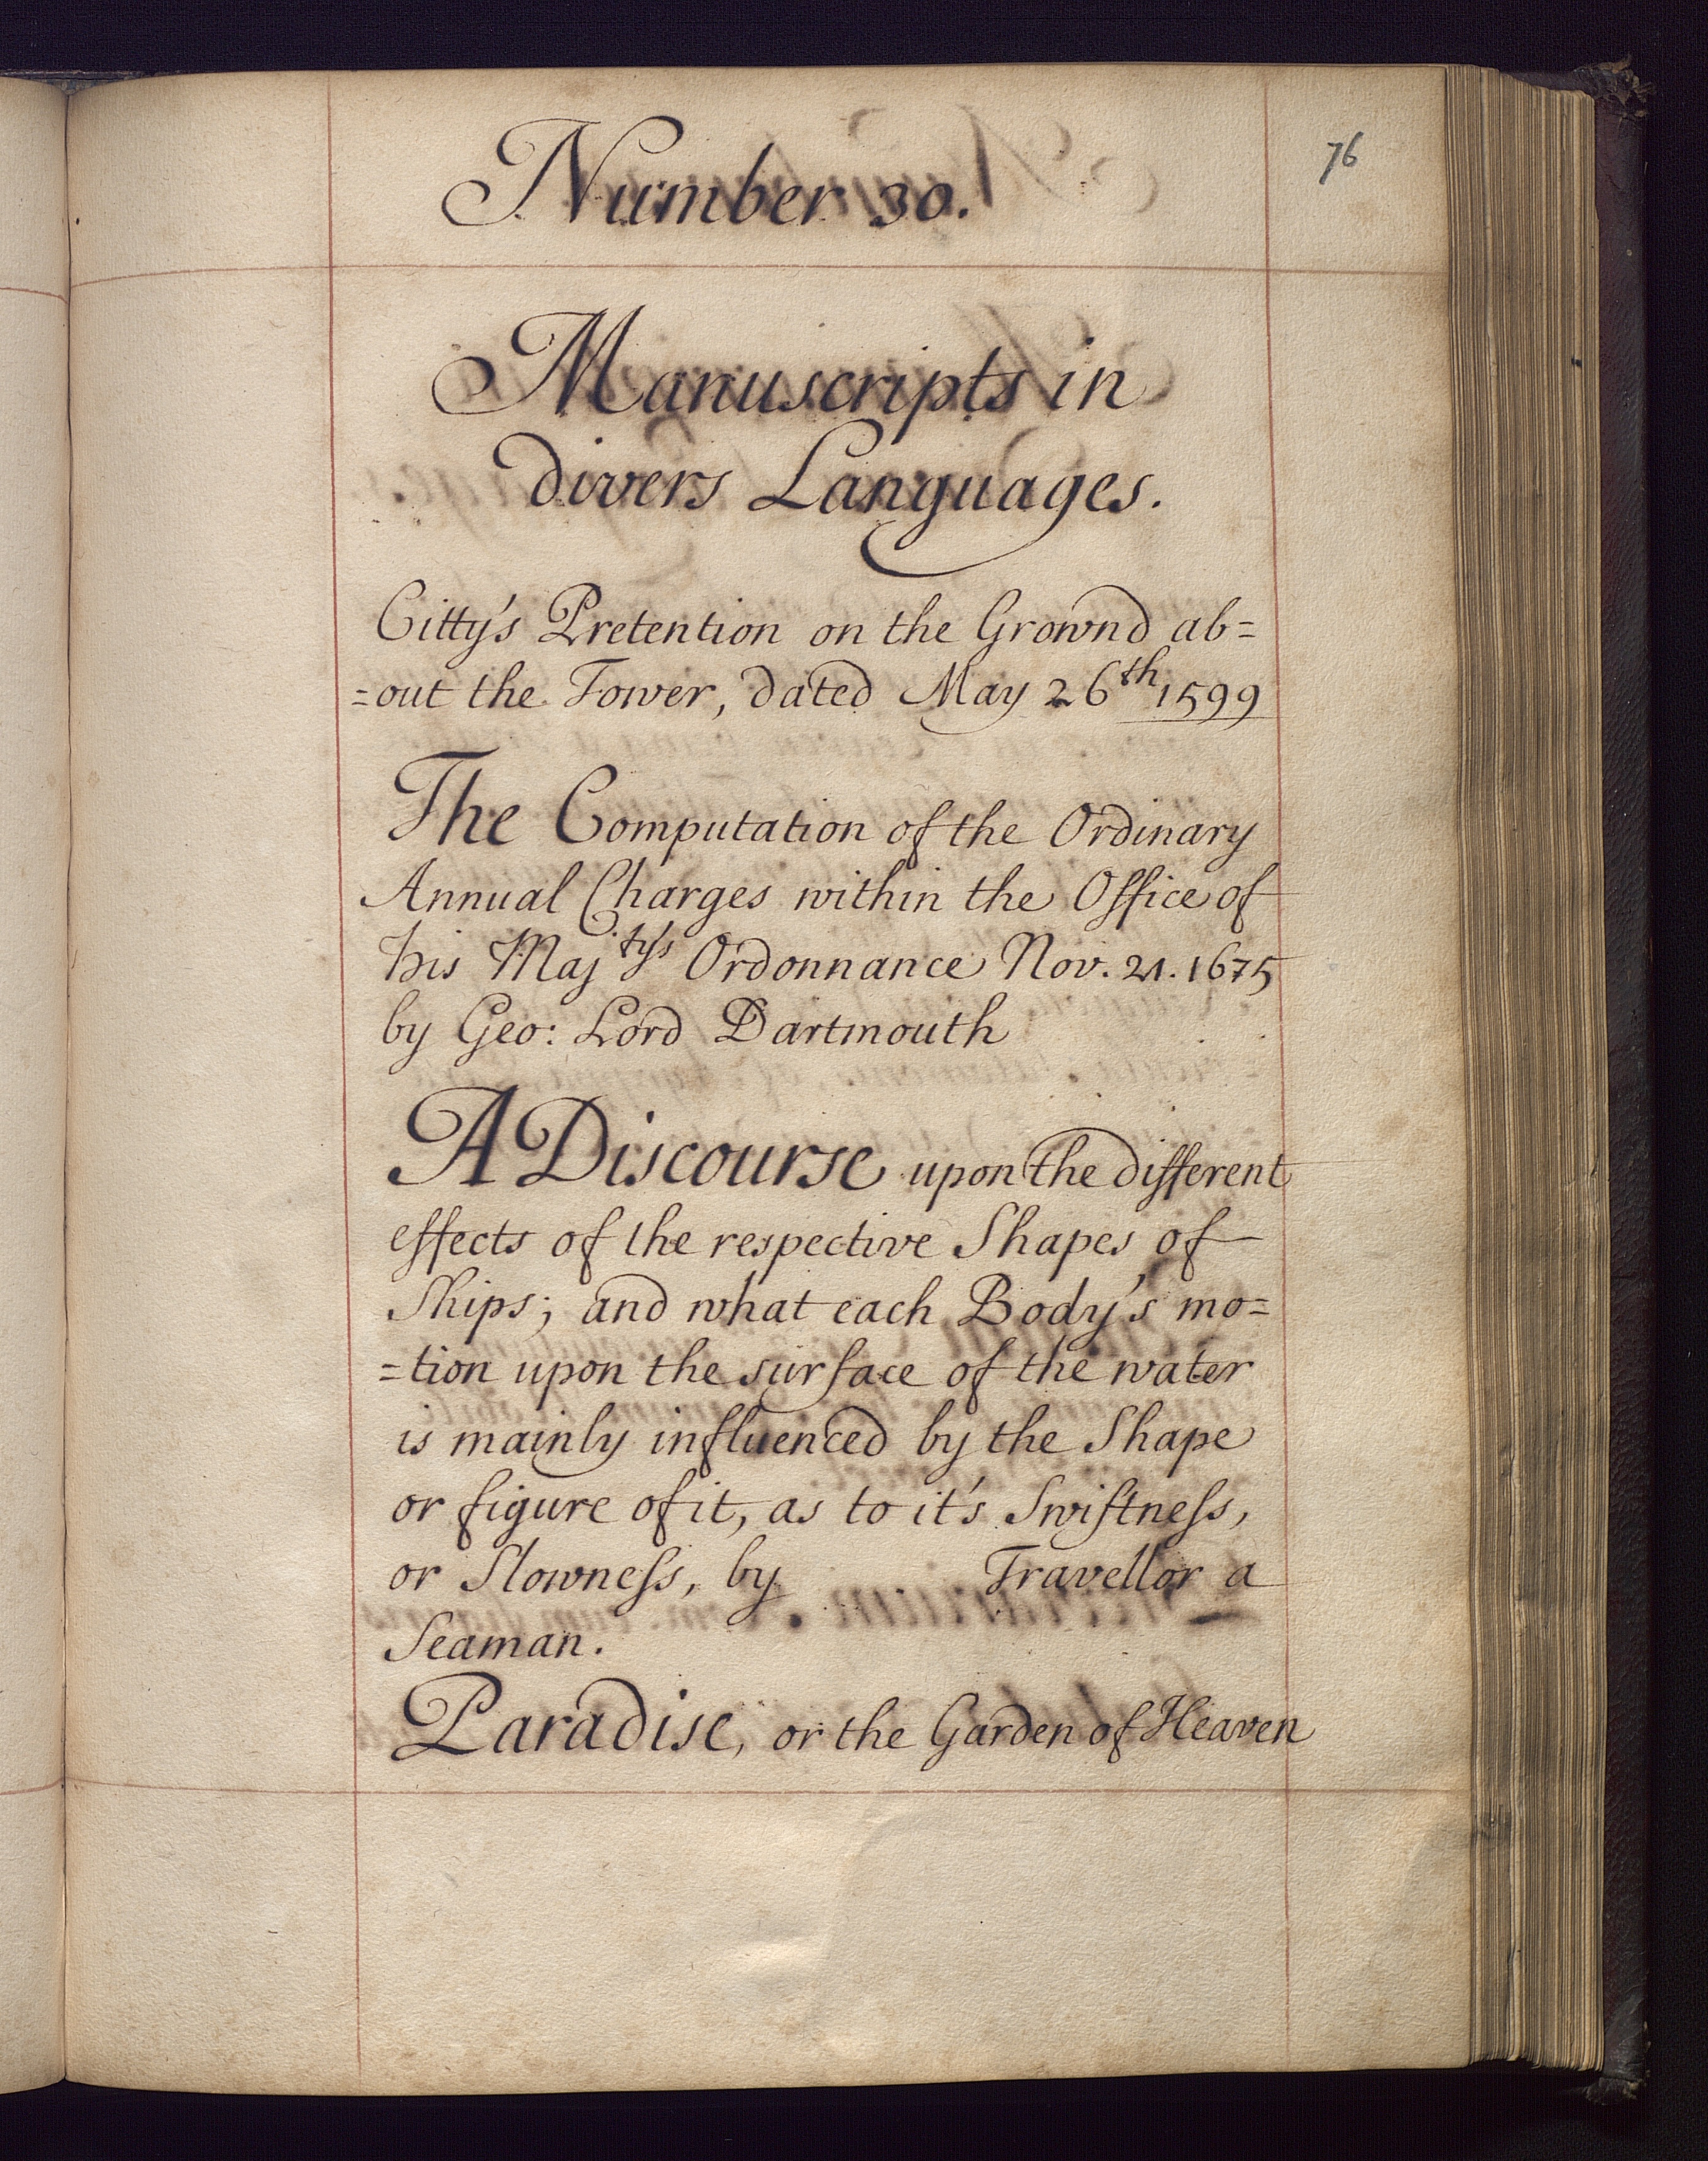 76
Number 30.
Manuscripts in
divers Languages.
Citty's Pretention on the Grownd ab=
=out the Tower, dated May 26th 1599
The Computation of the Ordinary
Annual Charges within the Office of
his Maj:tys Ordonnance Nov. 21. 1675
by Geo: Lord Dartmouth
A Discourse upon the different
effects of the respective Shapes of
Ships; and what each Body's mo=
=tion upon the surface of the water
is mainly influenced by the Shape
or figure of it, as to it's Swiftneſs,
or Slowneſs, by Travellor a
Seaman.
Paradise, or the Garden of Heaven